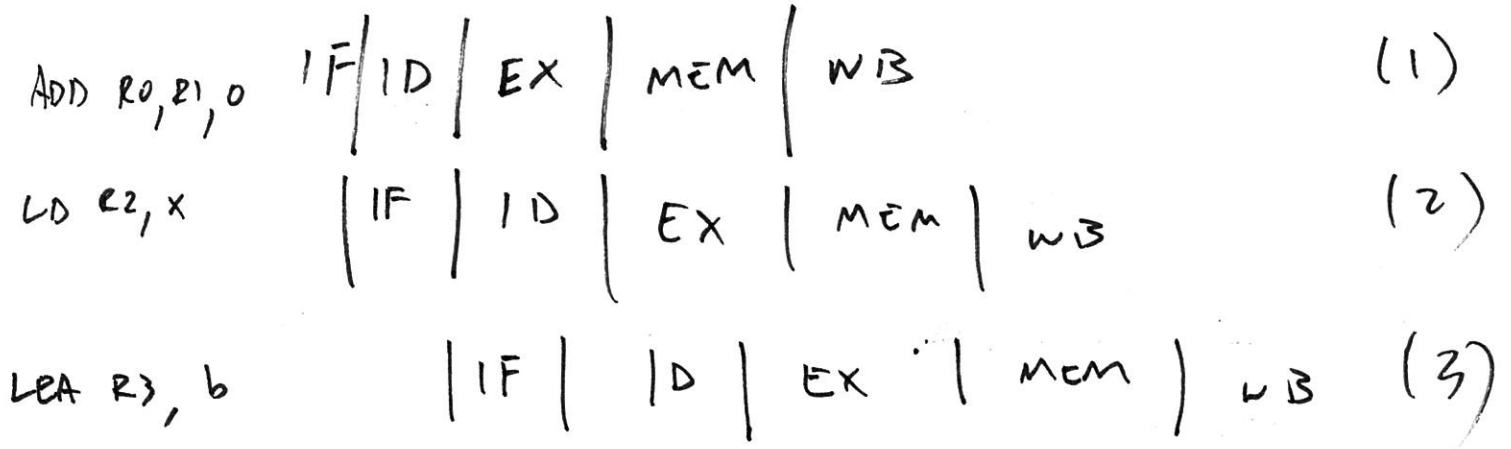 ADD R0,R1,0 IF|ID|EX|MEM|WB (1)
LD R2,X |IF|ID|EX|MEM|WB (2)
LEA R3,b |IF|ID|EX|MEM|WB (3)